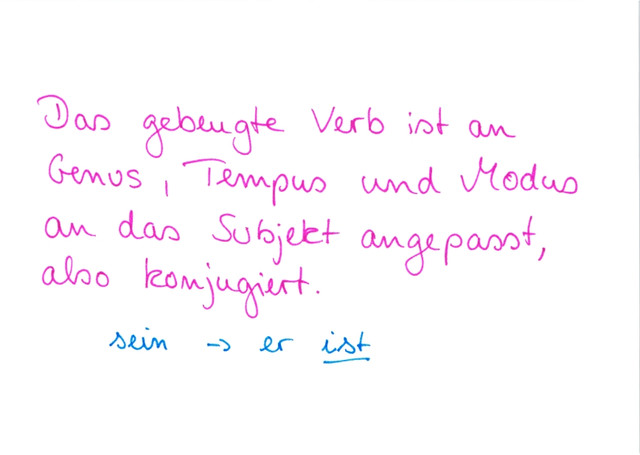 Das gebeugte Verb ist an
Genus, Tempus und Modus
an das Subjekt angepasst,
also konjugiert.
sein → er ist